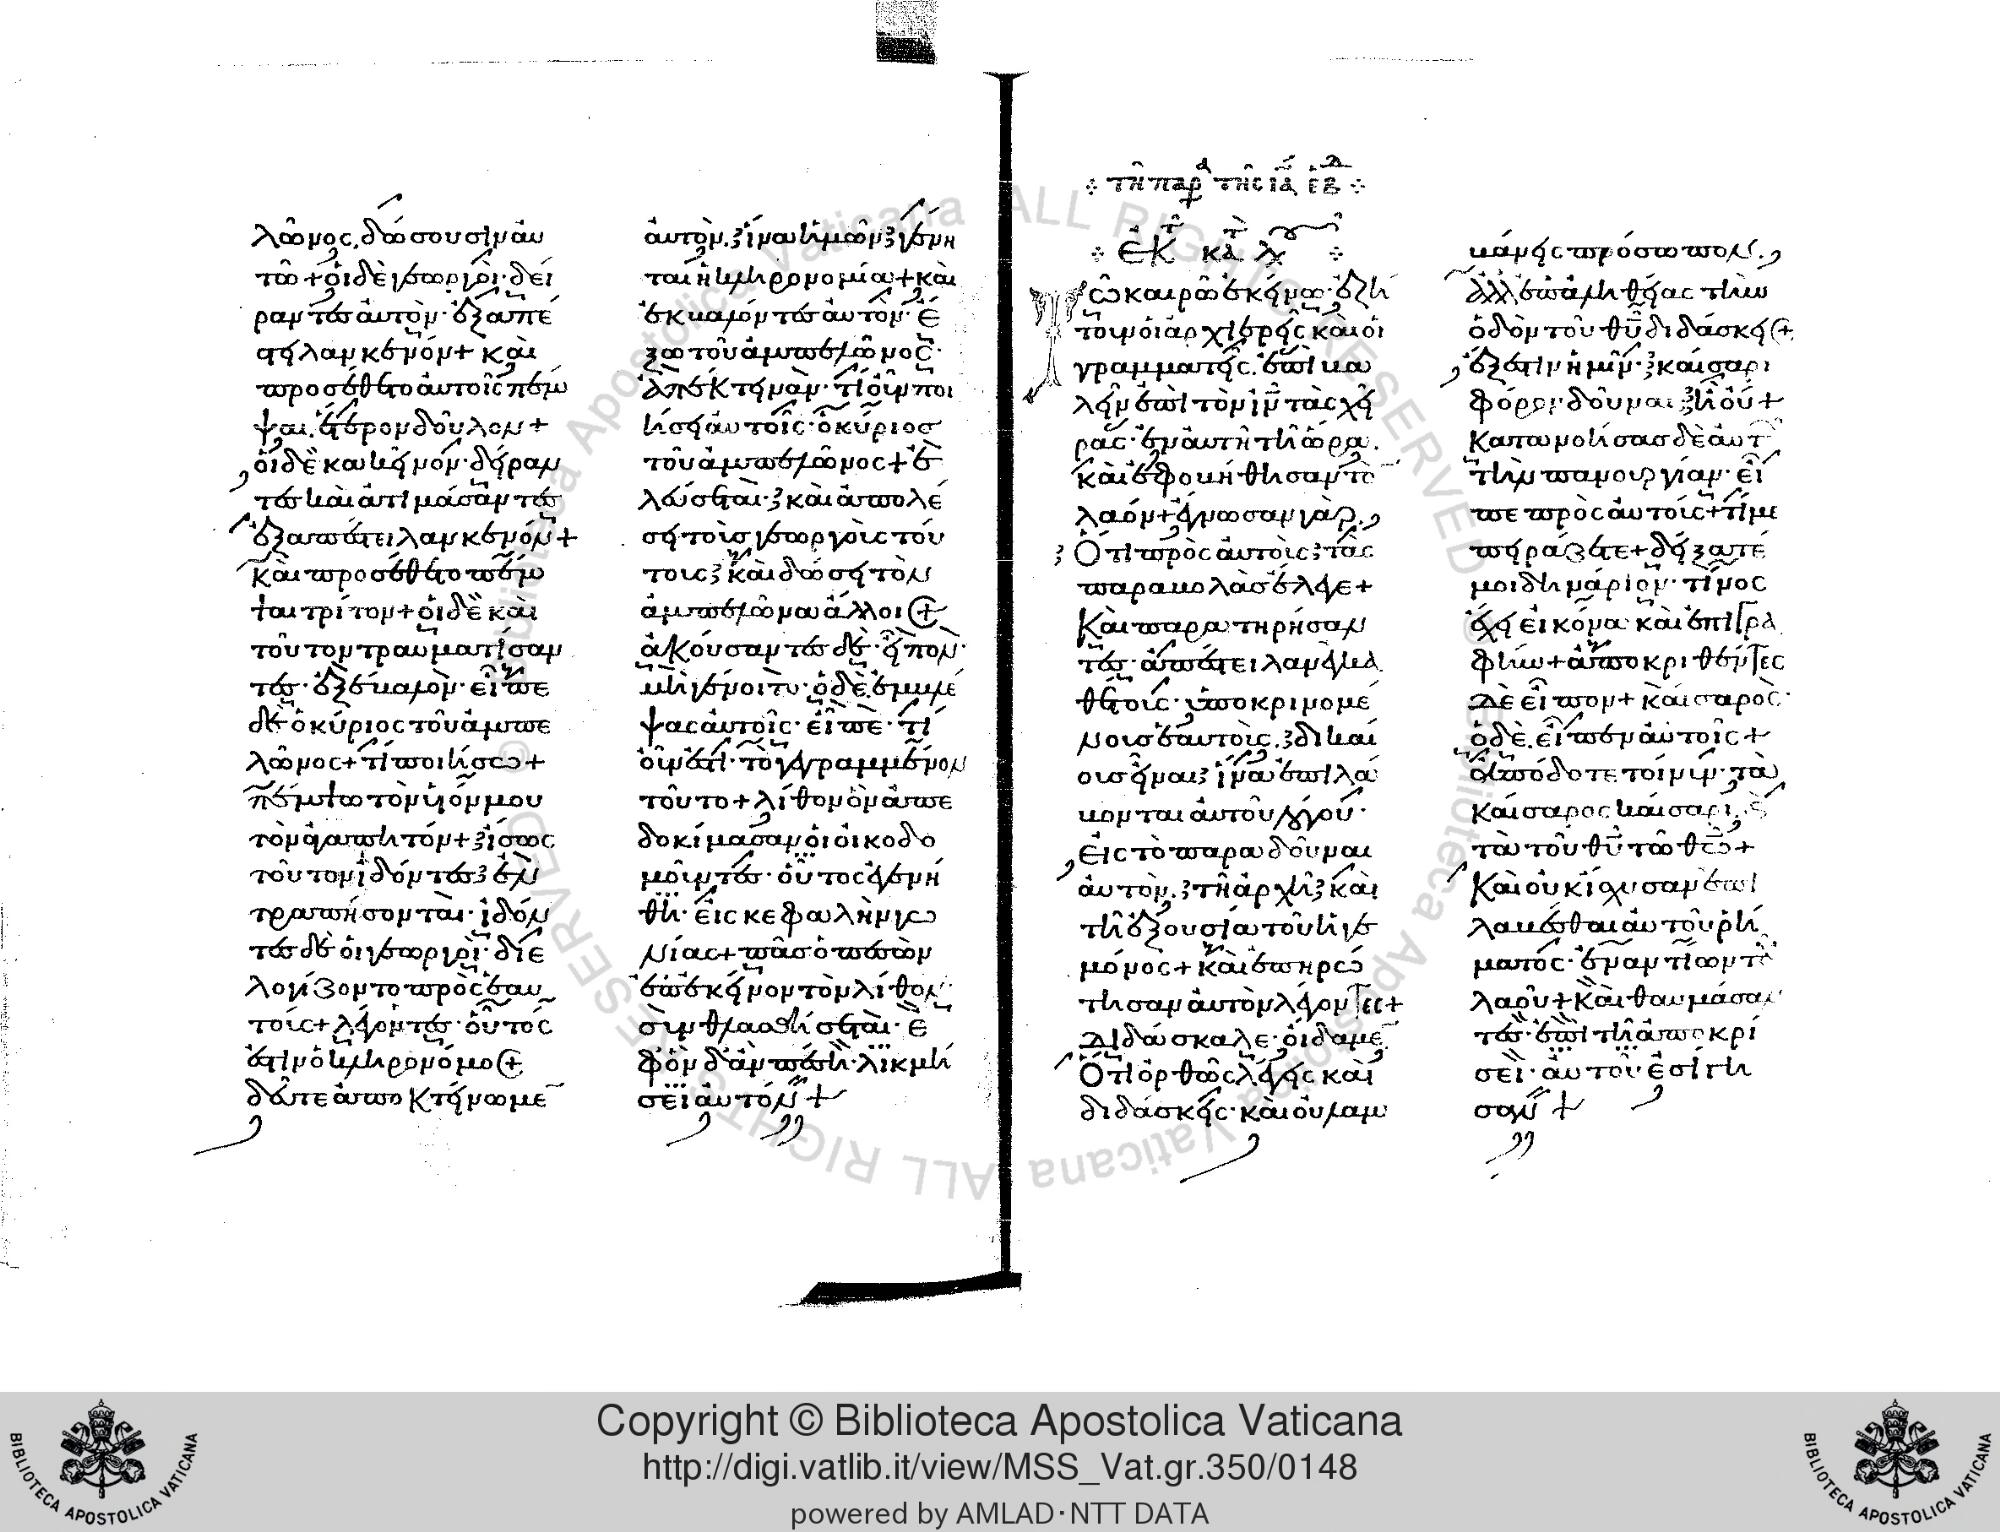 λῶνος, δώσουσιν αυ
τῶ + ὁι δὲ γεωργοὶ· δεί
ραντες ἀυτὸν· ἐξαπέ
στειλαν κενόν + καὶ
προσέθετο ἀυτοῖς πέμ
ψαι, ἕτερον δοῦλον +
ὁι δὲ κακεῖνον· δείραν
τες καὶ ἀτιμάσαντες
ἐξαπέστειλαν κενόν +
Καὶ προσέθετο πέμ
ψαι τρίτον + ὁι δὲ καὶ
τοῦτον τραυματίσαν
τες· ἐξέβαλον· εἶπε
δὲ ὁ κύριος τοῦ ἀμπε
λῶνος + τί ποιήσω +
πέμψω τὸν ὑιόν μου
τὸν ἀγαπητόν + ἴσως
τοῦτον ἰδόντες ἐν
τραπήσονται· ἰδόν
τες δὲ ὁι γεωργοὶ· διε
λογίζοντο πρὸς ἑαυ
τοὺς + λέγοντες· οὗτός
ἐστιν ὁ κληρονόμος +
δεῦτε ἀποκτείνωμε
ἀυτὸν, ἵνα ἡμῶν γένη
ται ἡ κληρονομία + καὶ
ἐκβαλόντες ἀυτὸν· ἔ
ξω τοῦ ἀμπελῶνος·
ἀπέκτειναν· τί οὖν ποι
ήσει ἀυτοῖς· ὁ κύριος
τοῦ ἀμπελῶνος + ἐ
λεύσεται· καὶ ἀπολέ
σει τοὺς γεωργοὺς τού
τους καὶ δώσει τὸν
ἀμπελῶνα ἄλλοις +
ἀκούσαντες δὲ· εἶπον·
μὴ γένοιτο· ὁ δὲ ἐμβλέ
ψας ἀυτοῖς· εἶπε· τί
οὖν ἐστὶ· τὸ γεγραμμένον
τοῦτο + λίθον ὃν ἀπε
δοκίμασαν ὁι ὀικοδο
μοῦντες· οὗτος ἐγενή
θη· ἐις κεφαλὴν γω
νίας + πᾶς ὁ πεσὼν
ἐπ' ἐκεῖνον τὸν λίθον·
συνθλασθήσεται· ἐ
φ' ὃν δ' ἂν πέση· λικμή
σει ἀυτόν +
τῆ παρ τῆς ια εβδ
ἐκ τ κατ λ
Τῶ καιρῶ ἐκείνω· ἐζή
τουν ὁι ἀρχιερεῖς καὶ ὁι
γραμματεῖς, ἐπιβα
λεῖν ἐπὶ τὸν ιν τὰς χεῖ
ρας· ἐν ἀυτῆ τῆ ὥρα,
καὶ ἐφοβήθησαν τὸ
λαόν + ἔγνωσαν γὰρ,
Ὅτι πρὸς ἀυτοὺς τὰς
παραβολὰς ἔλεγε +
Καὶ παρατηρήσαν
τες· ἀπέστειλαν ἐγκα
θέτους· ὑποκρινομέ
νους ἑαυτοὺς, δικαί
ους εἶναι ἵνα ἐπιλά
βονται ἀυτοῦ λόγου·
ἐις τὸ παραδοῦναι
ἀυτὸν, τῆ ἀρχῆ καὶ
τῆ ἐξουσία τοῦ ἡγε
μόνος + Καὶ ἐπηρώ
τησαν ἀυτὸν λέγοντες +
Διδάσκαλε· ὀίδαμε
Ὅτι ὀρθῶς λέγεις καὶ
διδάσκεις· καὶ ὀυ λαμ
βάνεις πρόσωπον,
Ἀλλ' ἐπ' ἀληθείας τὴν
ὁδὸν τοῦ θυ διδάσκεις +
ἔξεστιν ἡμῖν· καίσαρι
φόρον δοῦναι ἢ ού +
Κατανοήσας δὲ ἀυτ
τὴν πανουργίαν· εἶ
πε πρὸς ἀυτούς + τί με
πειράζετε + δείξατέ
μοι δηνάριον· τίνος
ἔχει εικόνα καὶ ἐπιγρα
φήν + ἀποκριθέντες
δὲ εἶπον + καίσαρος·
ὁ δὲ, εἶπεν ἀυτοῖς +
ἀπόδοτε τοίνυν· τὰ
Καίσαρος καίσαρι,
τὰ τοῦ θυ τῶ θω +
Καὶ ουκ ίσχυσαν ἐπι
λαβέσθαι ἀυτοῦ ῥή
ματος· ἐναντίον τοῦ
λαοῦ + Καὶ θαυμάσαν
τες· ἐπὶ τῆ ἀποκρί
σει· ἀυτοῦ ἐσίγη
σαν +
Copyright © Biblioteca Apostolica Vaticana
http://digi.vatlib.it/view/MSS_Vat.gr.350/0148
powered by AMLAD·NTT DATA
BIBLIOTECA APOSTOLICA VATICANA
BIBLIOTECA APOSTOLICA VATICANA